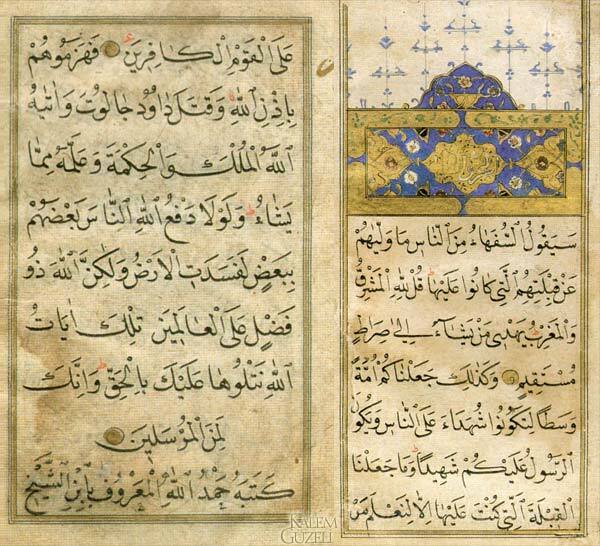 سَيَقُولُ السُّفَهَاءُ مِنَ النَّاسِ مَا وَلّٰيهُمْ
عَنْ قِبْلَتِهِمُ الَّتِي كَانُوا عَلَيْهَا قُلْ لِلّٰهِ الْمَشْرِقُ
وَالْمَغْرِبُ يَهْدِي مَنْ يَشَاءُ إِلَى صِرَاطٍ
مُسْتَقِيمٍ وَكَذٰلِكَ جَعَلْنَاكُمْ أُمَّةً
وَسَطًا لِتَكُونُوا شُهَدَاءَ عَلَى النَّاسِ وَيَكُونَ
الرَّسُولُ عَلَيْكُمْ شَهِيدًا وَمَا جَعَلْنَا
الْقِبْلَةَ الَّتِي كُنْتَ عَلَيْهَا إِلَّا لِنَعْلَمَ مَنْ
عَلَى الْقَوْمِ الْكَافِرِينَ فَهَزَمُوهُمْ
بِإِذْنِ اللّٰهِ وَقَتَلَ دَاوُدُ جَالُوتَ وَاٰتٰيهُ
اللّٰهُ الْمُلْكَ وَالْحِكْمَةَ وَعَلَّمَهُ مِمَّا
يَشَاءُ وَلَوْلَا دَفْعُ اللّٰهِ النَّاسَ بَعْضَهُمْ
بِبَعْضٍ لَفَسَدَتِ الْاَرْضُ وَلٰكِنَّ اللّٰهَ ذُو
فَضْلٍ عَلَى الْعَالَمِينَ تِلْكَ اٰيَاتُ
اللّٰهِ نَتْلُوهَا عَلَيْكَ بِالْحَقِّ وَاِنَّكَ
لَمِنَ الْمُرْسَلِينَ
كَتَبَهُ حَمْدُ اللّٰهِ الْمَعْرُوفُ بِابْنِ الشَّيْخِ
KALEM
GUZELI